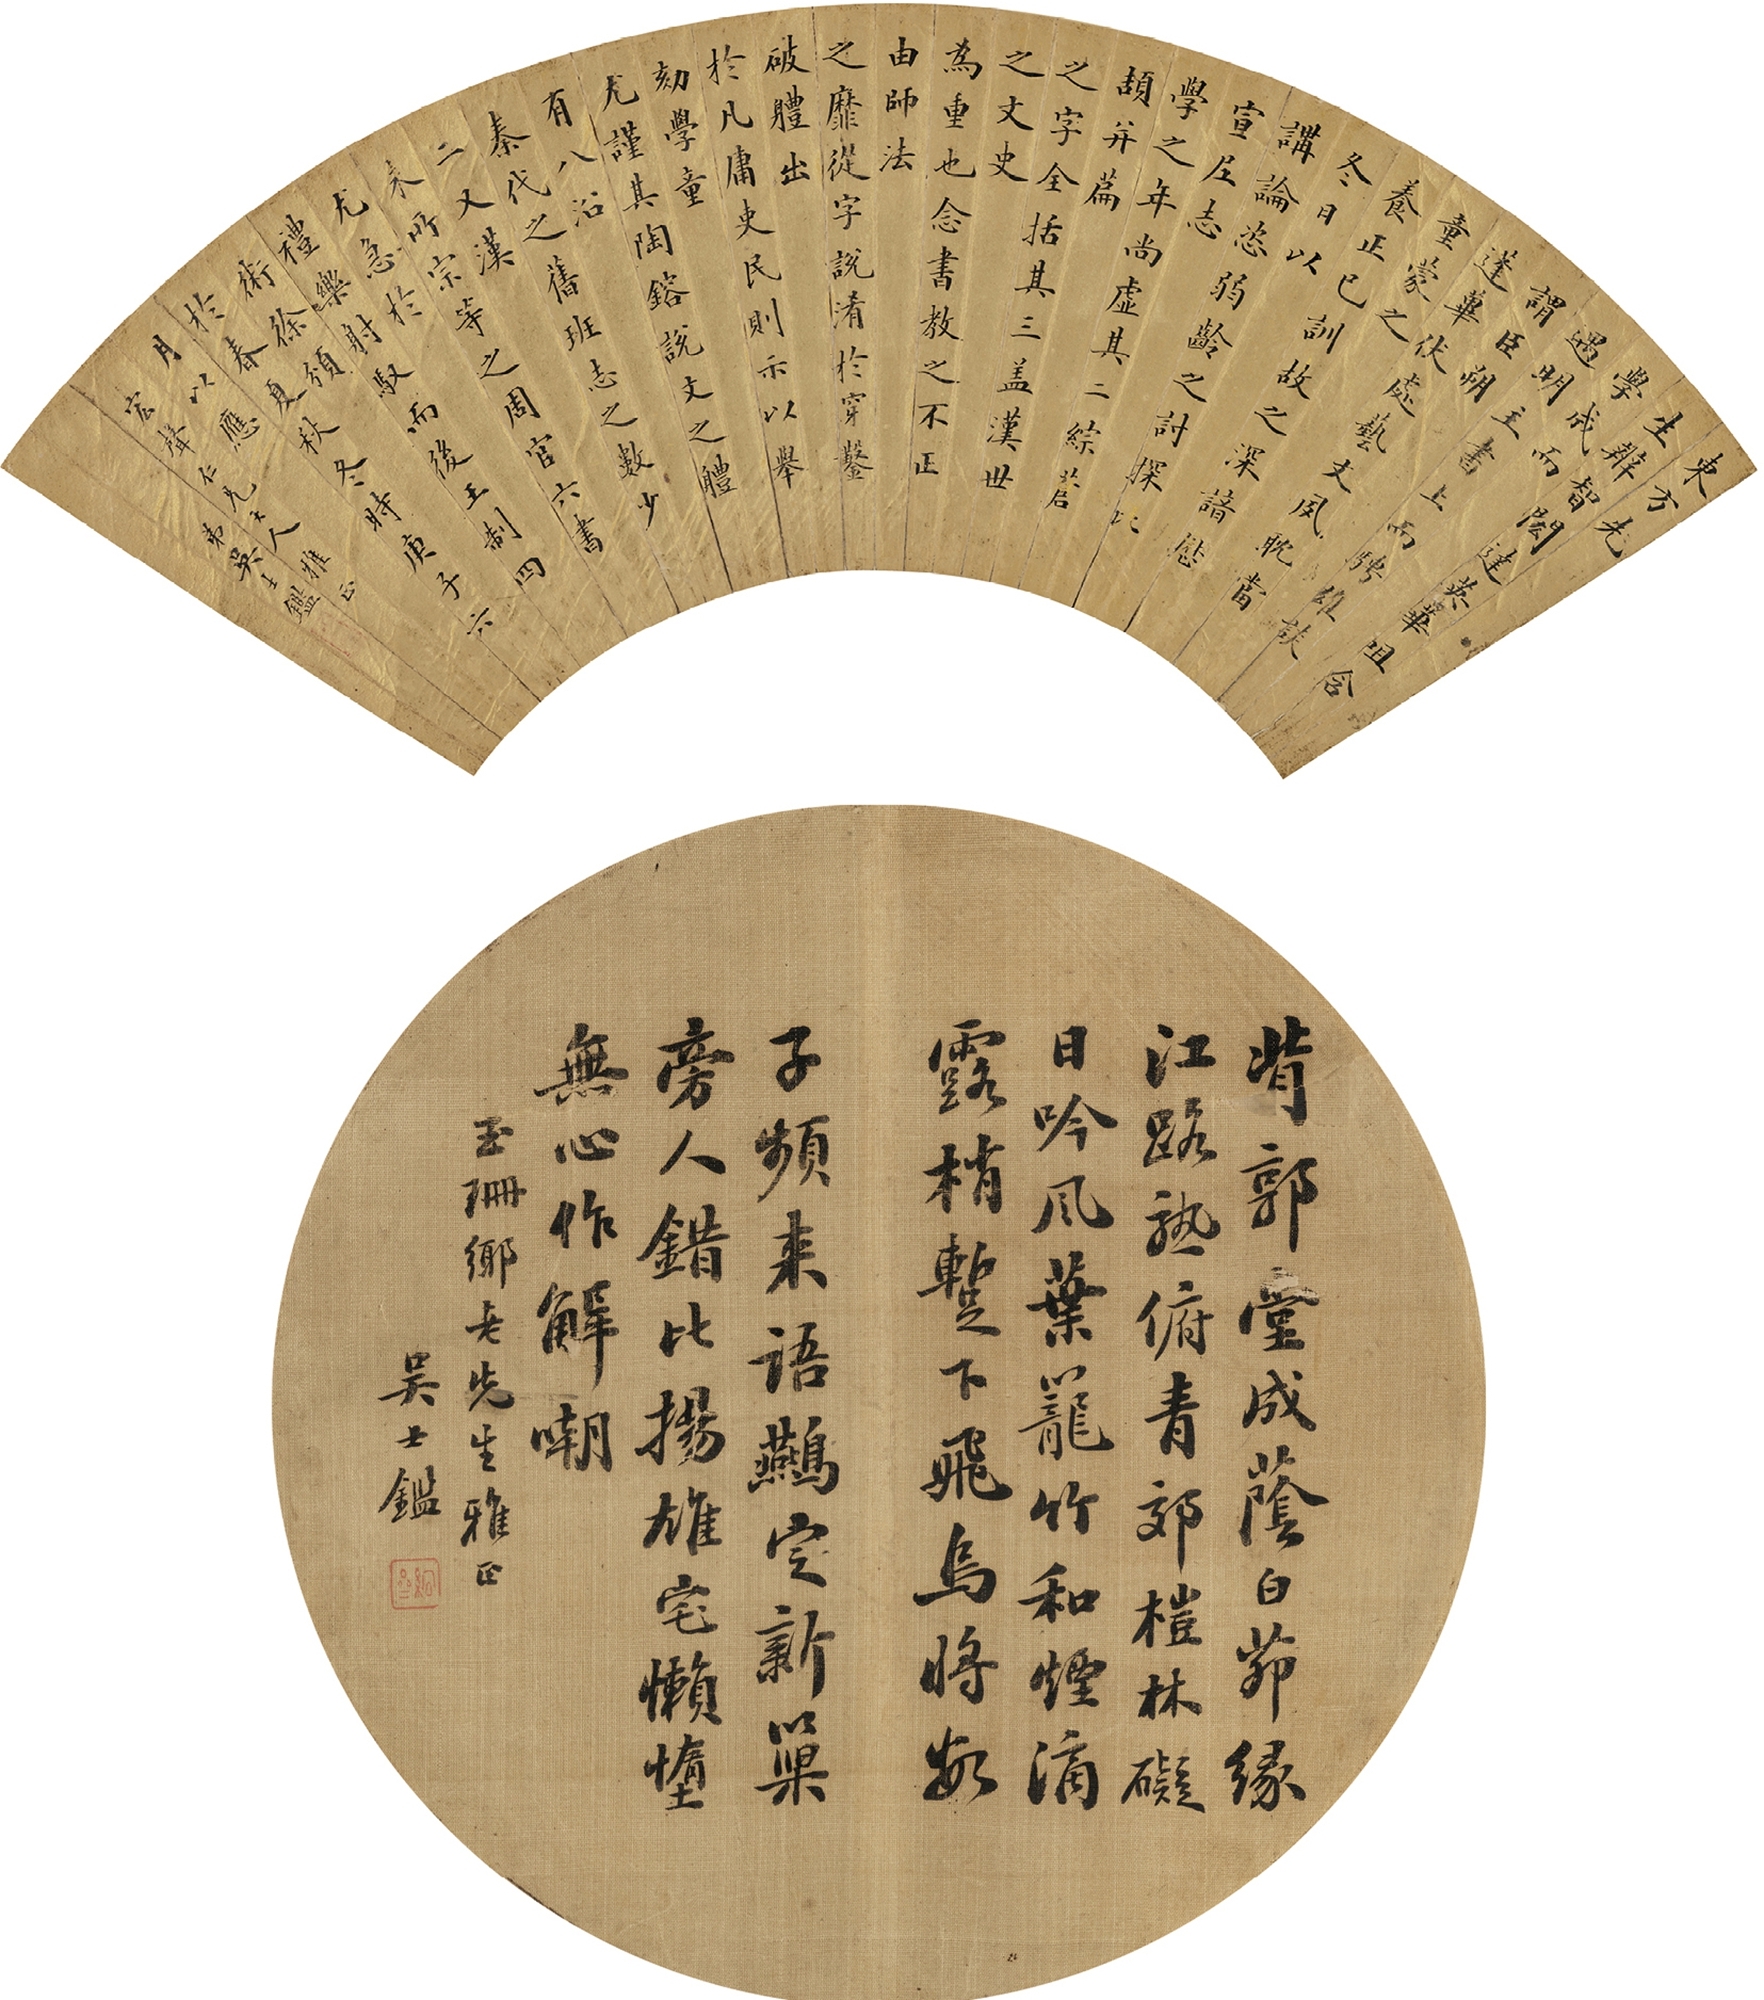 東方先
生辯智閎達英華咀含
學成而
遇明主書上而騁雄談
謂臣朔
蓬蓽伏處藝文夙耽當
童蒙之
養正已訓故之深諳慰
冬日以
講論恣弱齡之討探以
宣左志
學之年尚虛其二綜若
頡并篇
之字全括其三蓋漢世
之文史
為重也念書教之不正
由師法
之靡從字說淆於穿鑿
破體出
於凡庸吏民則示以舉
劾學童
尤謹其陶鎔說文之體
有八沿
秦代之舊班志之數少
二又漢
未所宗等之周官六書
尤急於
禮樂射馭而後王制四
術徐須
於春夏秋冬時庚子六
月以應
宏聲仁兄大人雅正
弟吳士鑑
背郭堂成蔭白茆緣
江路熟俯青郊榿林礙
日吟風葉籠竹和煙滴
露梢暫下飛烏將數
子頻來語鷰定新巢
旁人錯比揚雄宅懶惰
無心作解嘲
玉珊鄉老先生雅正
吳士鑑